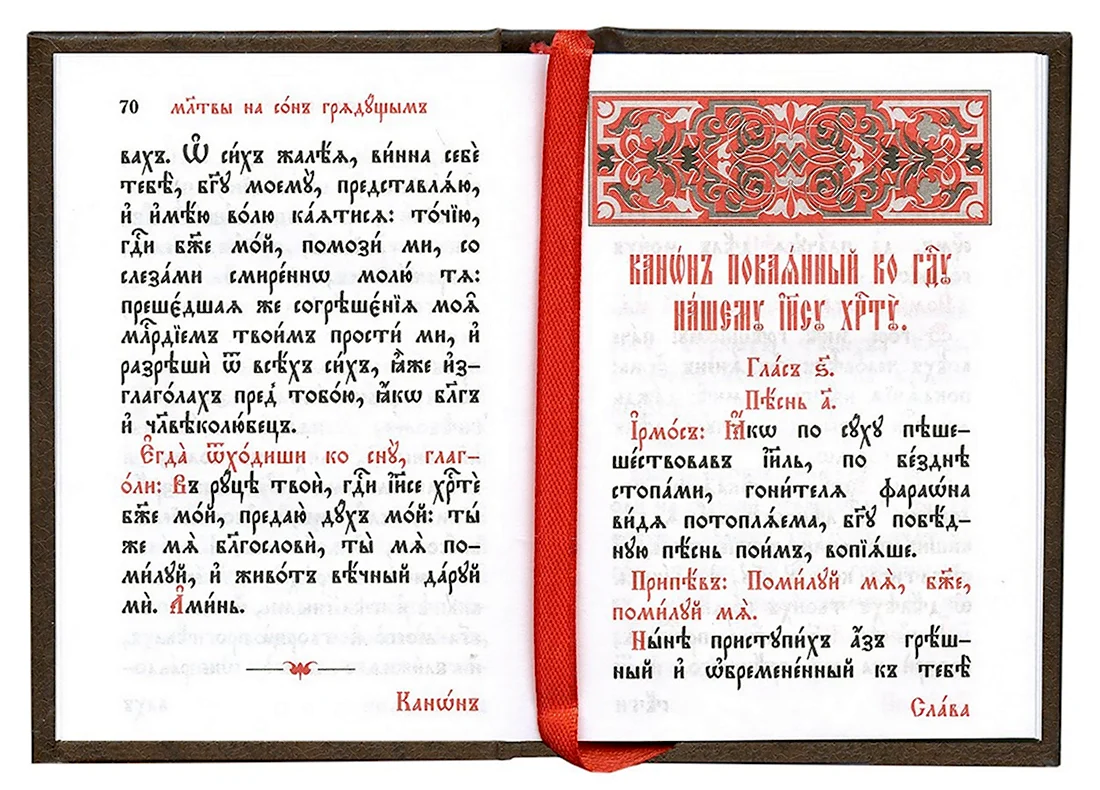 70 мл҃твы на со́нъ грѧдꙋ́щымъ
вахъ. Ѽ си́хъ жалѣ́ѧ, ви́нна себѐ
тебѣ̀, бг҃ꙋ моемꙋ̀, представлѧ́ю,
и҆ и҆мѣ́ю во́лю ка́ѧтисѧ: то́чїю,
гдⷭ҇и бж҃е мо́й, помози́ ми, со
слеза́ми смире́ннѡ молю́ тѧ:
преше́дшаѧ же согрѣше́нїѧ моѧ̑
млⷭ҇рдїемъ твои́мъ прости́ ми, и҆
разрѣшѝ ѿ всѣ́хъ си́хъ, ꙗ҆̀же и҆з-
глаго́лахъ пред̾ тобо́ю, ꙗ҆́кѡ бл҃гъ
и҆ чл҃вѣколю́бецъ.
Є҆гда̀ ѿхо́диши ко снꙋ̀, глаг-
о́ли: Въ рꙋ́цѣ твоѝ, гдⷭ҇и і҆и҃се хрⷭ҇те
бж҃е мо́й, предаю̀ дꙋ́хъ мо́й: ты́
же мѧ̀ бл҃гословѝ, ты̀ мѧ̀ по-
ми́лꙋй, и҆ живо́тъ вѣ́чный да́рꙋй
мѝ. А҆ми́нь.
Канѡ́нъ
канѡ́нъ покаѧ́нный ко гдⷭ҇ꙋ
на́шемꙋ і҆и҃сꙋ хрⷭ҇тꙋ̀.
Гла́съ ѕ҃.
Пѣ́снь а҃.
І҆рмо́съ: Ꙗ҆́кѡ по сꙋ́хꙋ пѣше-
ше́ствовавъ і҆и҃ль, по бе́зднѣ
стопа́ми, гони́телѧ фараѡ́на
ви́дѧ потоплѧ́ема, бг҃ꙋ побѣ́д-
нꙋю пѣ́снь пои́мъ, вопїѧ́ше.
Припѣ́въ: Поми́лꙋй мѧ̀, бж҃е,
поми́лꙋй мѧ̀.
Ны́нѣ пристꙋпи́хъ а҆́зъ грѣ́ш-
ный и҆ ѡ҆бремене́нный къ тебѣ̀
Сла́ва